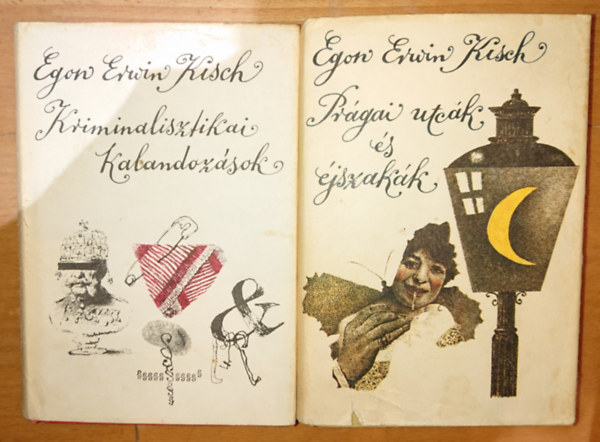 Egon Erwin Kisch
Kriminalisztikai
Kalandozások
Egon Erwin Kisch
Prágai utcák
és
éjszakák